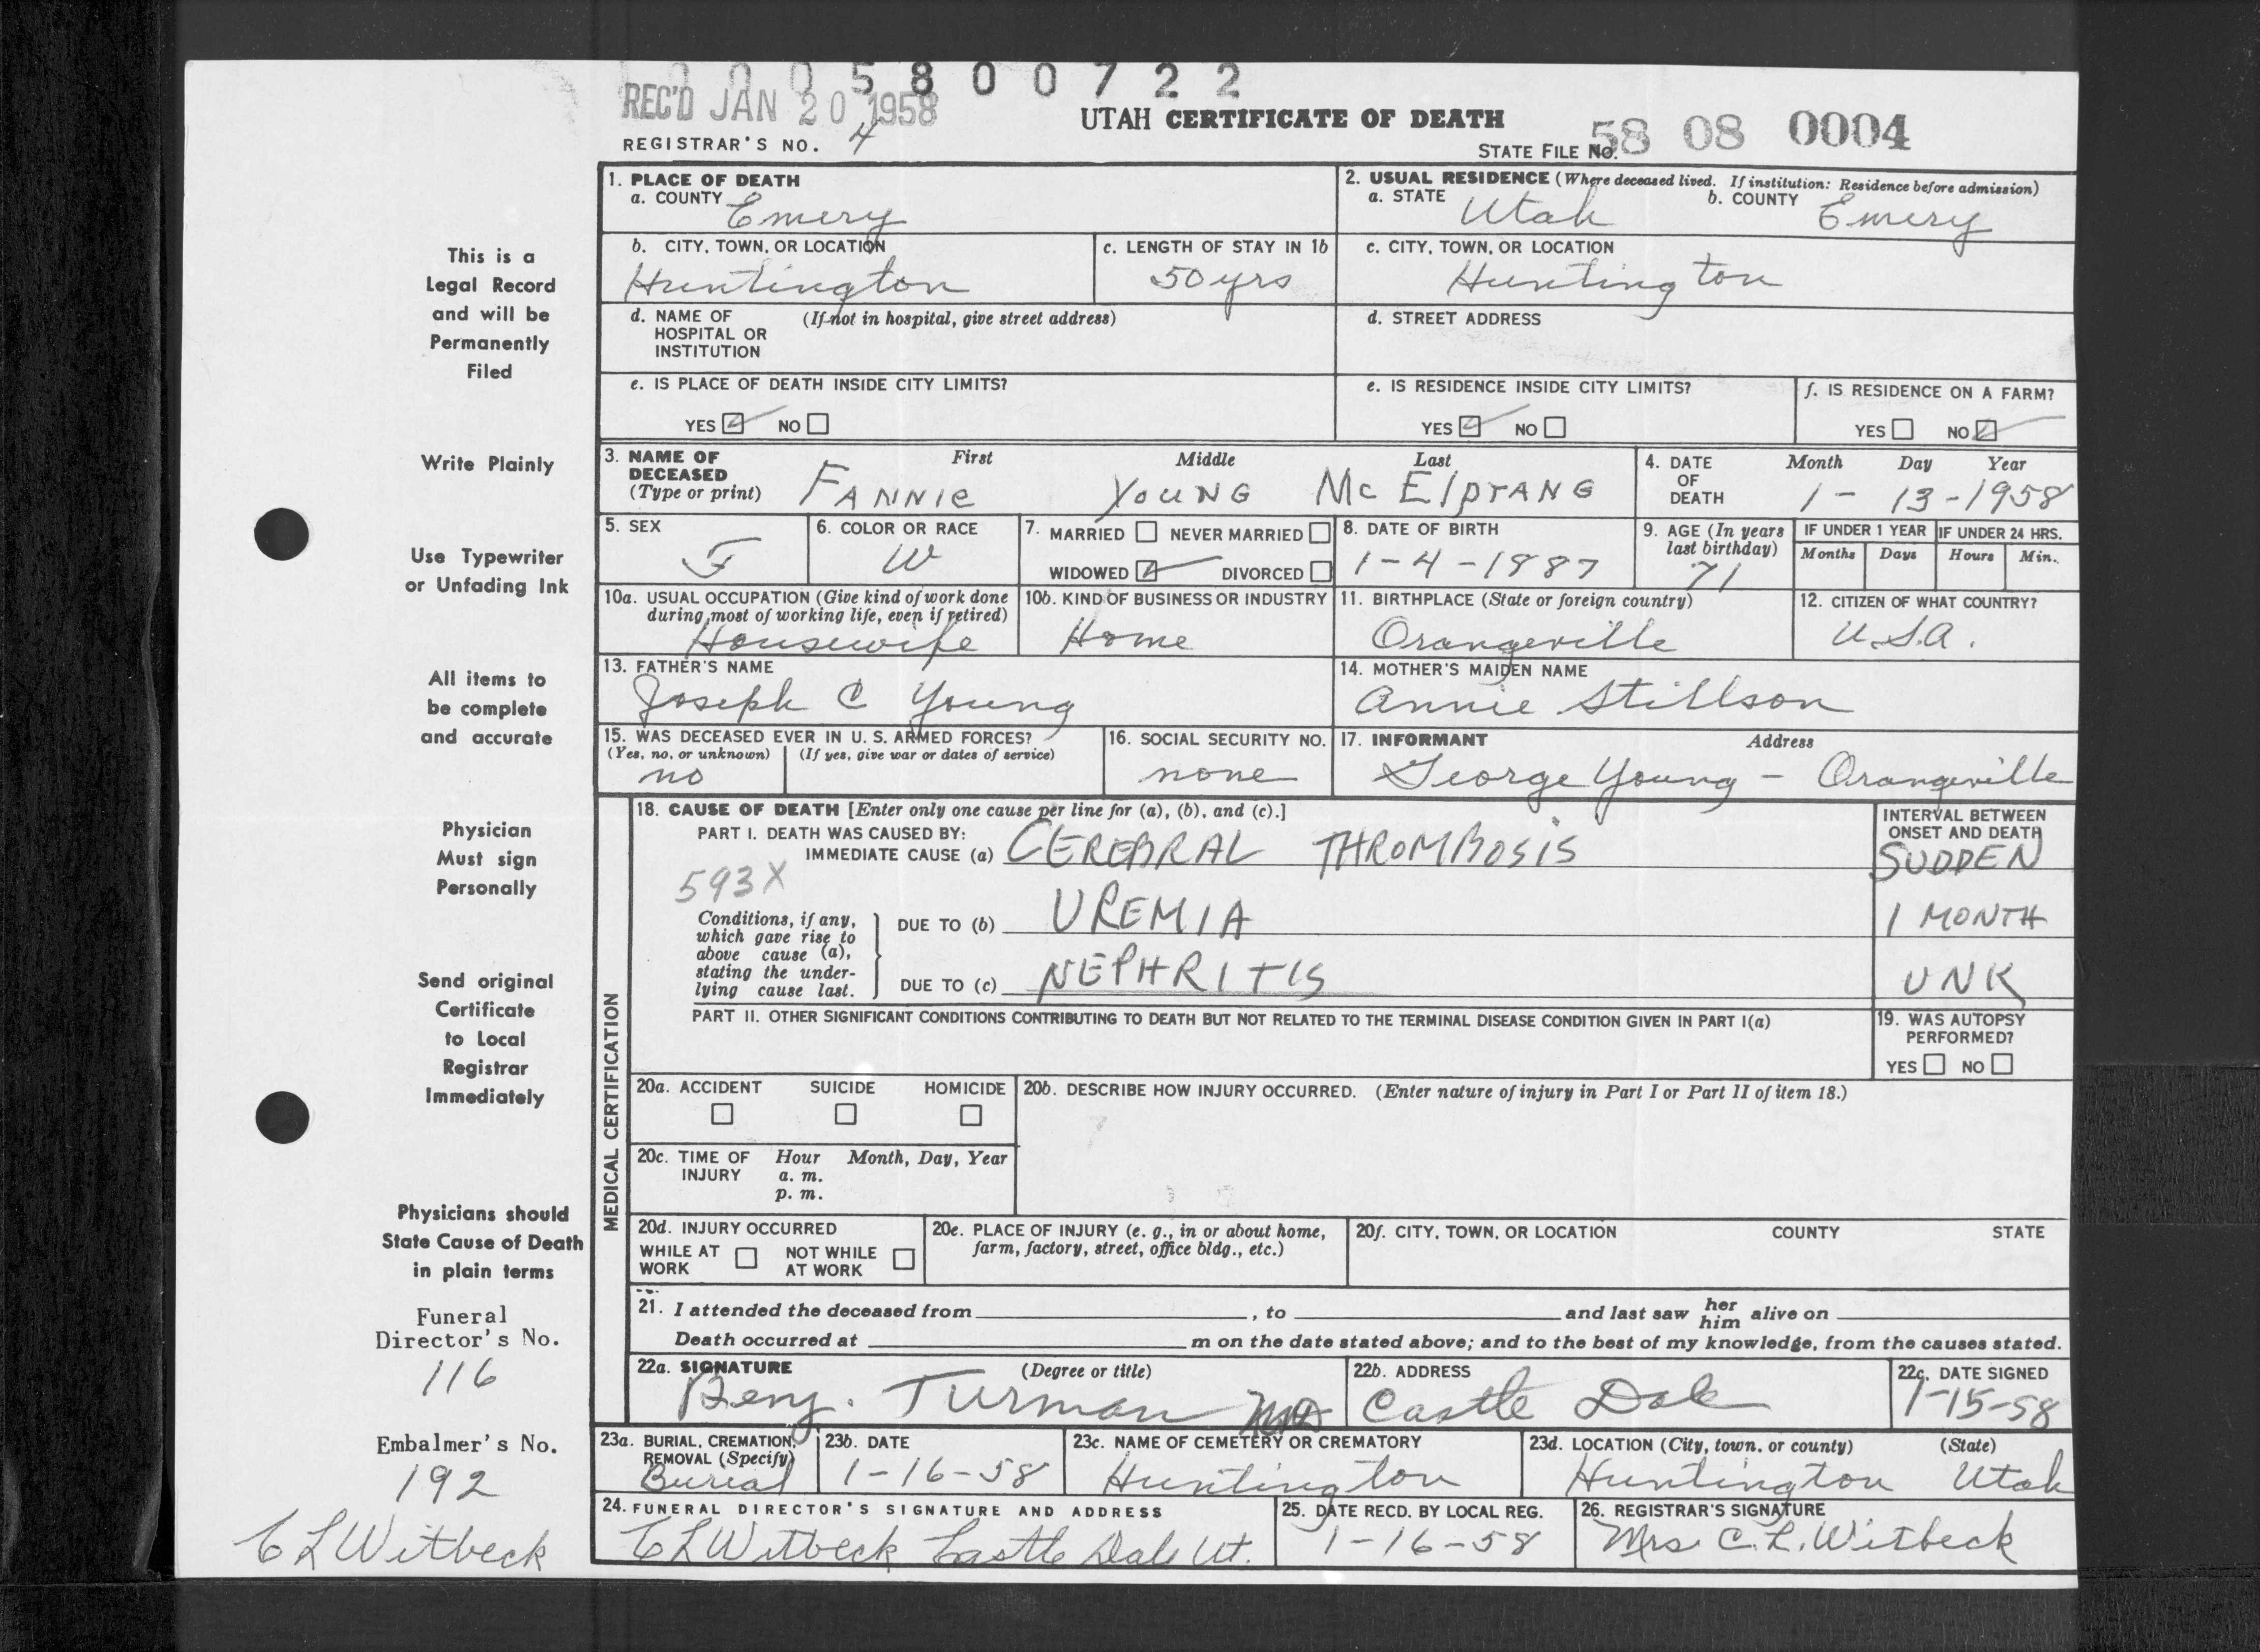 0 0 0 5 8 0 0 7 2 2
REC'D JAN 20 1958
UTAH CERTIFICATE OF DEATH
REGISTRAR'S NO. 4
STATE FILE NO. 58 08 0004
1. PLACE OF DEATH
a. COUNTY Emery
2. USUAL RESIDENCE (Where deceased lived. If institution: Residence before admission)
a. STATE Utah b. COUNTY Emery
b. CITY, TOWN, OR LOCATION Huntington
c. LENGTH OF STAY IN 1b 50 yrs
c. CITY, TOWN, OR LOCATION Huntington
d. NAME OF HOSPITAL OR INSTITUTION (If not in hospital, give street address)
d. STREET ADDRESS
e. IS PLACE OF DEATH INSIDE CITY LIMITS?
YES ☑ NO ☐
e. IS RESIDENCE INSIDE CITY LIMITS?
YES ☑ NO ☐
f. IS RESIDENCE ON A FARM?
YES ☐ NO ☑
3. NAME OF DECEASED (Type or print)
First Middle Last
FANNIE YOUNG Mc ElprANG
4. DATE OF DEATH Month Day Year
1 - 13 - 1958
5. SEX F
6. COLOR OR RACE W
7. MARRIED ☐ NEVER MARRIED ☐
WIDOWED ☑ DIVORCED ☐
8. DATE OF BIRTH
1-4-1887
9. AGE (In years last birthday) 71
IF UNDER 1 YEAR Months Days
IF UNDER 24 HRS. Hours Min.
10a. USUAL OCCUPATION (Give kind of work done during most of working life, even if retired)
Housewife
10b. KIND OF BUSINESS OR INDUSTRY
Home
11. BIRTHPLACE (State or foreign country)
Orangeville
12. CITIZEN OF WHAT COUNTRY?
U.S.A.
13. FATHER'S NAME
Joseph C Young
14. MOTHER'S MAIDEN NAME
Annie Stillson
15. WAS DECEASED EVER IN U. S. ARMED FORCES?
(Yes, no, or unknown) (If yes, give war or dates of service)
no
16. SOCIAL SECURITY NO.
none
17. INFORMANT Address
George Young - Orangeville
MEDICAL CERTIFICATION
18. CAUSE OF DEATH [Enter only one cause per line for (a), (b), and (c).]
PART I. DEATH WAS CAUSED BY:
IMMEDIATE CAUSE (a) CEREBRAL THROMBOSIS
INTERVAL BETWEEN ONSET AND DEATH
SUDDEN
593X
Conditions, if any, which gave rise to above cause (a), stating the underlying cause last.
DUE TO (b) UREMIA
1 MONTH
DUE TO (c) NEPHRITIS
UNK
PART II. OTHER SIGNIFICANT CONDITIONS CONTRIBUTING TO DEATH BUT NOT RELATED TO THE TERMINAL DISEASE CONDITION GIVEN IN PART I(a)
19. WAS AUTOPSY PERFORMED?
YES ☐ NO ☐
20a. ACCIDENT SUICIDE HOMICIDE
☐ ☐ ☐
20b. DESCRIBE HOW INJURY OCCURRED. (Enter nature of injury in Part I or Part II of item 18.)
20c. TIME OF INJURY Hour Month, Day, Year
a. m.
p. m.
20d. INJURY OCCURRED
WHILE AT WORK ☐ NOT WHILE AT WORK ☐
20e. PLACE OF INJURY (e. g., in or about home, farm, factory, street, office bldg., etc.)
20f. CITY, TOWN, OR LOCATION COUNTY STATE
21. I attended the deceased from , to and last saw her him alive on
Death occurred at m on the date stated above; and to the best of my knowledge, from the causes stated.
22a. SIGNATURE (Degree or title)
Benj. Turman MD
22b. ADDRESS
Castle Dale
22c. DATE SIGNED
1-15-58
23a. BURIAL, CREMATION, REMOVAL (Specify)
Burial
23b. DATE
1-16-58
23c. NAME OF CEMETERY OR CREMATORY
Huntington
23d. LOCATION (City, town, or county) (State)
Huntington Utah
24. FUNERAL DIRECTOR'S SIGNATURE AND ADDRESS
C L Witbeck Castle Dale Ut.
25. DATE RECD. BY LOCAL REG.
1-16-58
26. REGISTRAR'S SIGNATURE
Mrs C. L. Witbeck
This is a
Legal Record
and will be
Permanently
Filed
Write Plainly
Use Typewriter
or Unfading Ink
All items to
be complete
and accurate
Physician
Must sign
Personally
Send original
Certificate
to Local
Registrar
Immediately
Physicians should
State Cause of Death
in plain terms
Funeral
Director's No.
116
Embalmer's No.
192
C L Witbeck